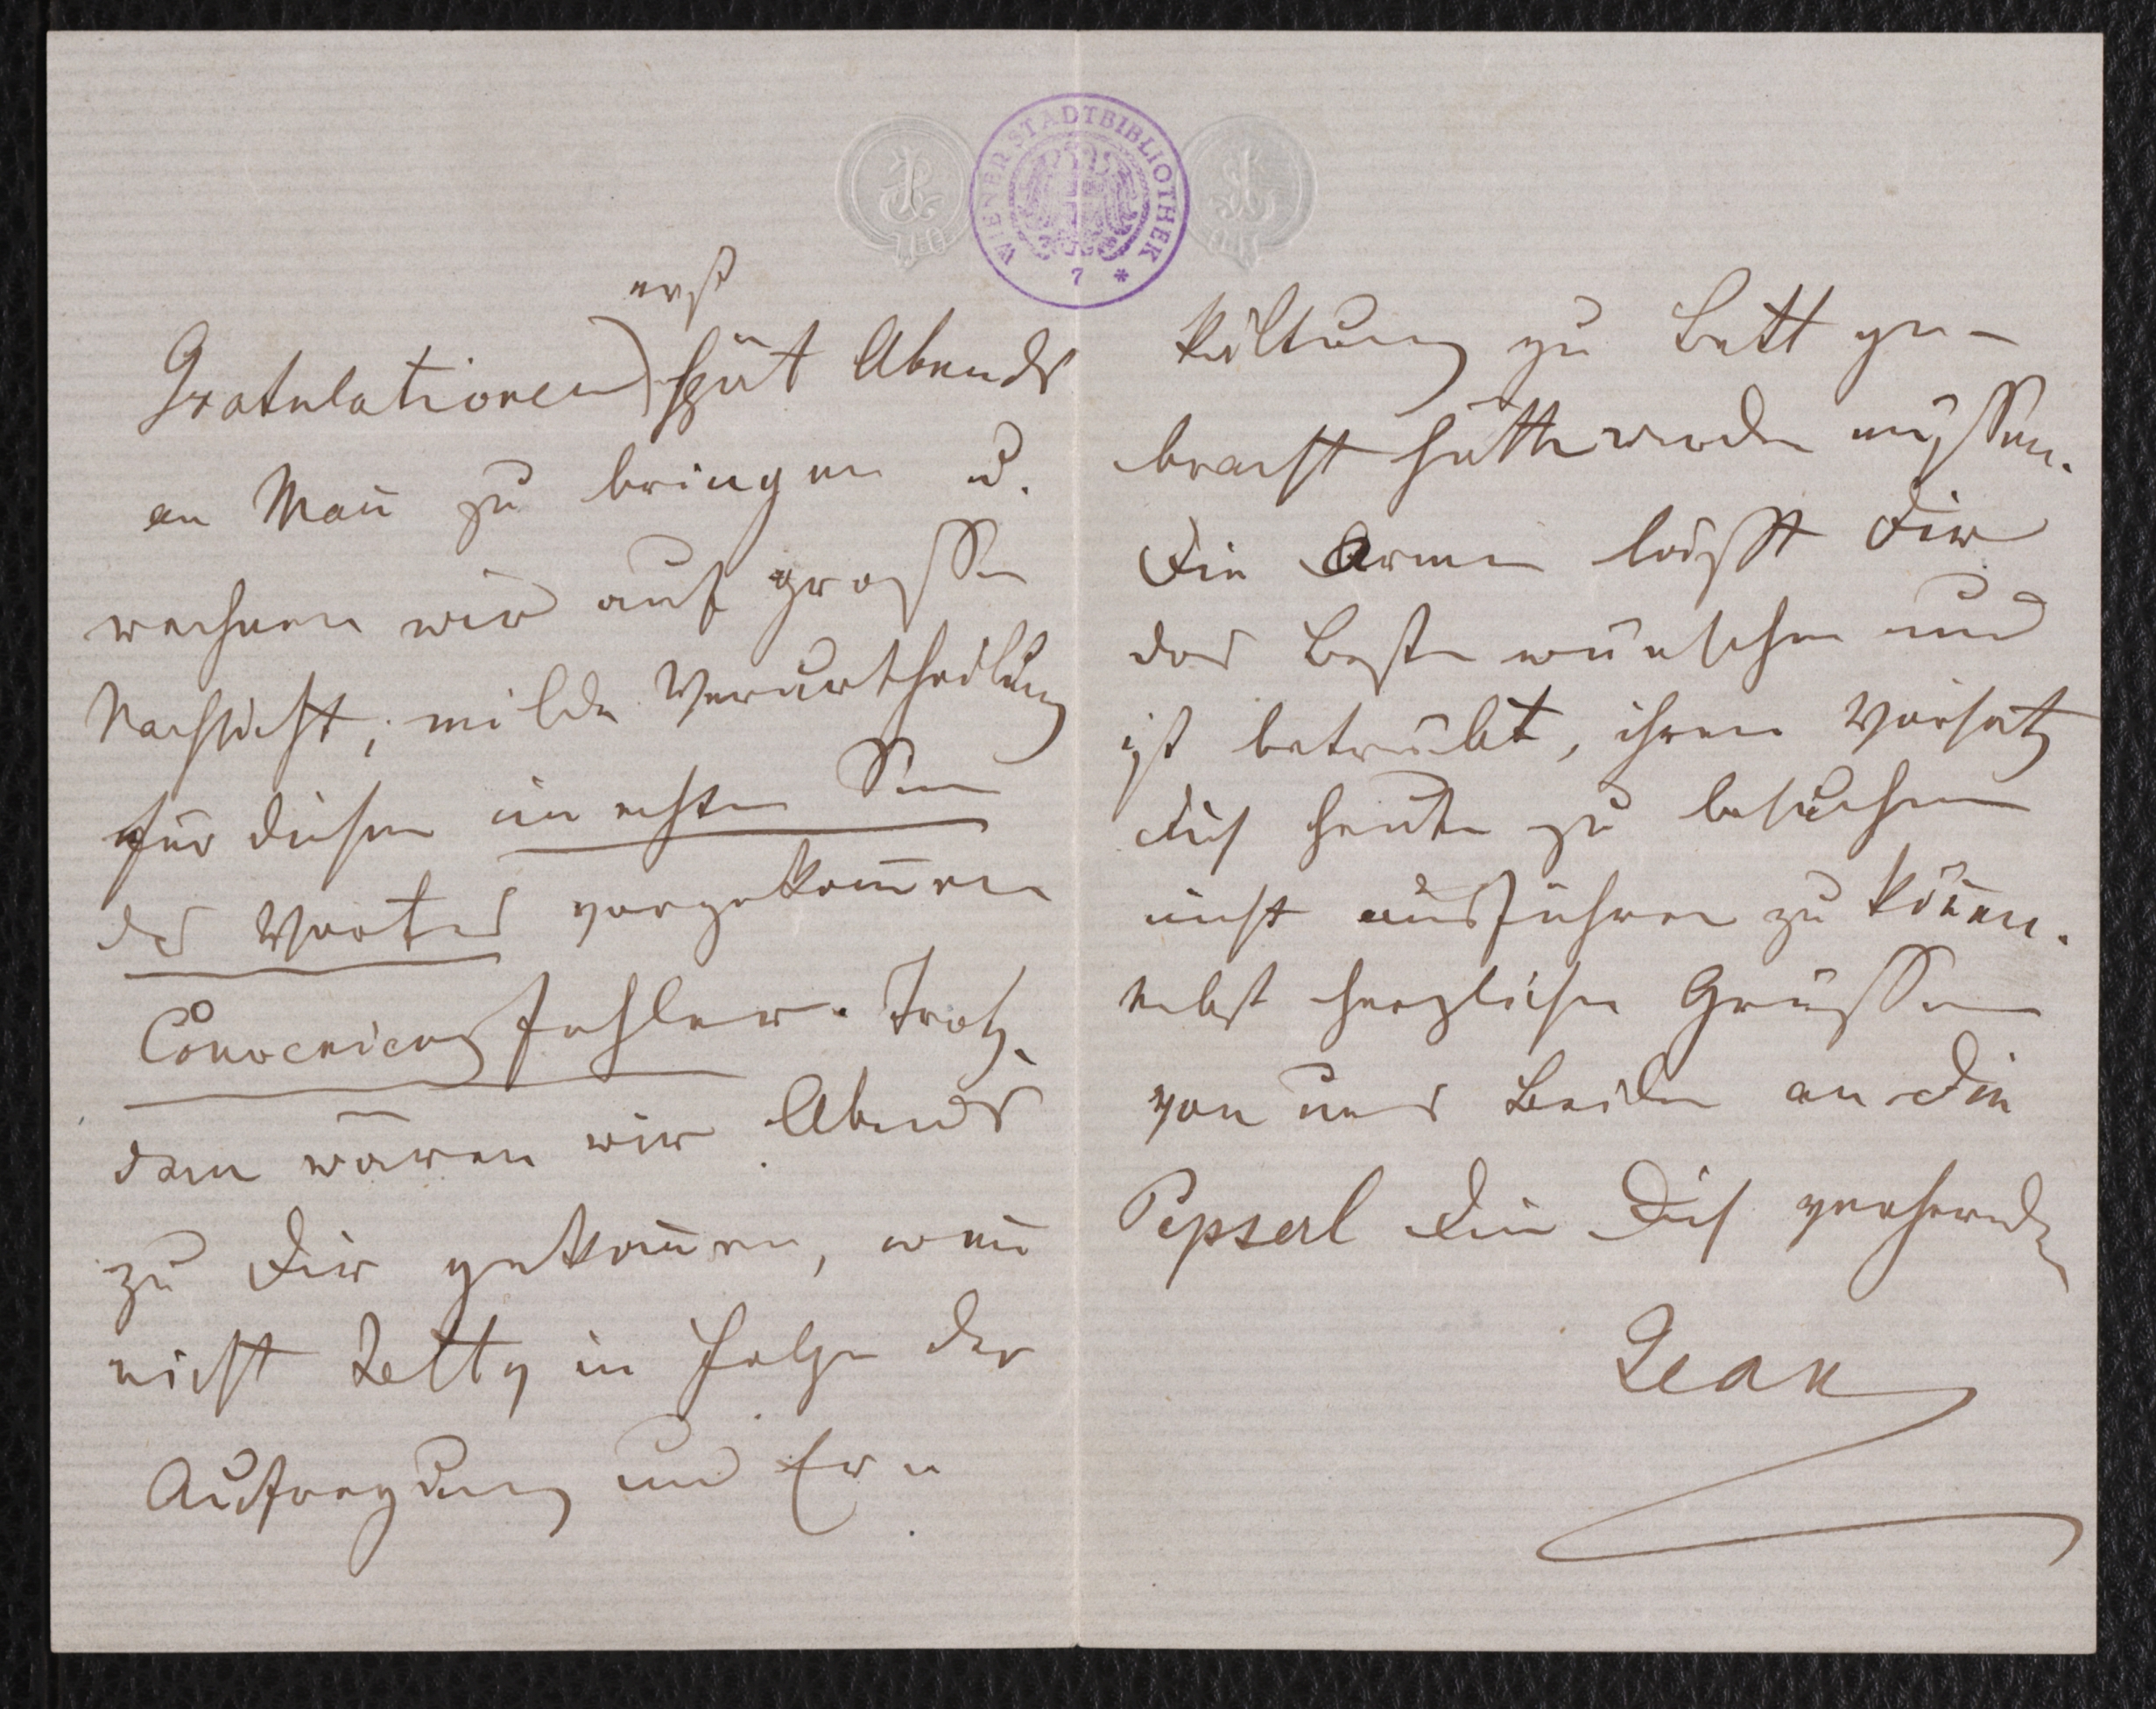 WIENER STADTBIBLIOTHEK
7 *
erst
Gratulationen) spät Abends
an Man̄ zu bringen u.
rechnen wir auf grossen
Nachsicht, milde Verurtheilung
für diesen im echten Sinn
des Wortes vorgekom̄enen
Convenienzfehler. Trotz
dem wären wir Abends
zu Dir gekom̄en, wen̄
nicht Jetty in Folge der
Aufregung und Er
kältung zu Bett ge-
bracht hätte werden müssen.
Die Arme lässt Dir
das Beste wünschen und
ist betrübt, ihren Vorsatz
Dich heute zu besuchen
nicht ausführen zu kön̄en.
Nebst herzlichen Grüssen
von uns Beiden an die
Pepserl Dein Dich verehrender
Jean